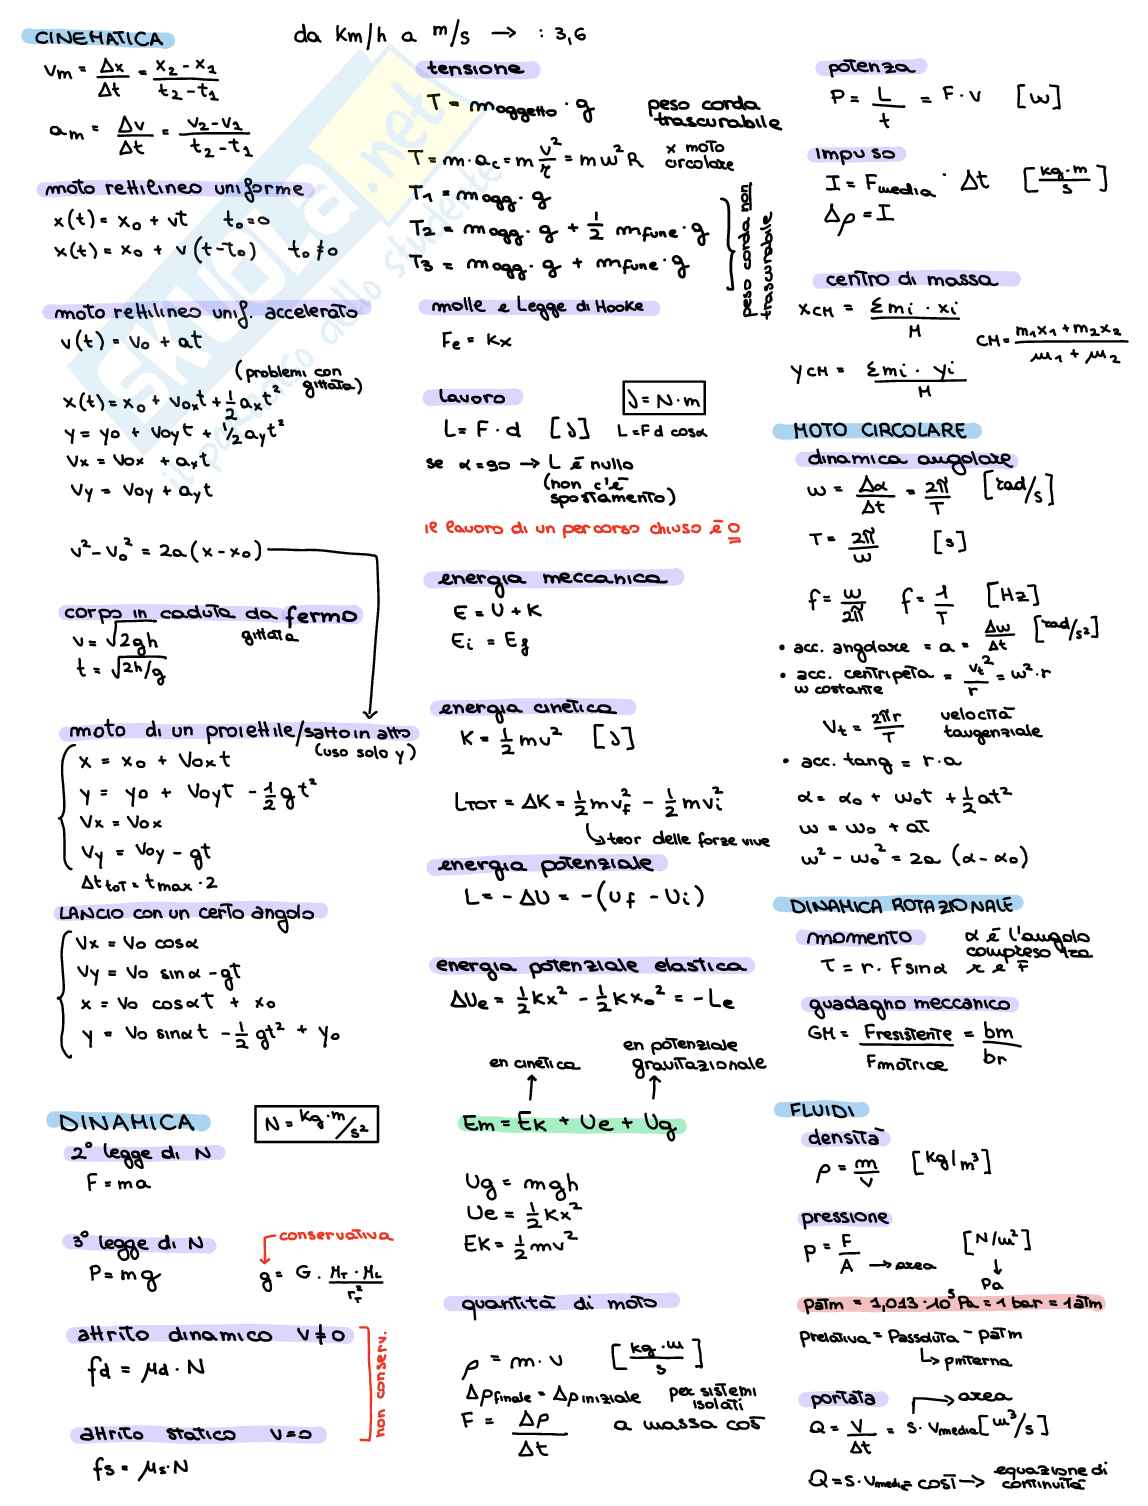 CINEMATICA
da Km/h a m/s → : 3,6
Vm = Δx/Δt = (x2 - x1)/(t2 - t1)
am = Δv/Δt = (v2 - v1)/(t2 - t1)
moto rettilineo uniforme
x(t) = x0 + vt t0=0
x(t) = x0 + v(t-t0) t0≠0
moto rettilineo unif. accelerato
v(t) = v0 + at
(problemi con gittata)
x(t) = x0 + v0x t + 1/2 ax t²
y = y0 + v0y t + 1/2 ay t²
Vx = V0x + ax t
Vy = V0y + ay t
v² - v0² = 2a(x - x0)
corpo in caduta da fermo
gittata
v = √2gh
t = √2h/g
moto di un proiettile/salto in alto
(uso solo y)
x = x0 + V0x t
y = y0 + V0y t - 1/2 gt²
Vx = V0x
Vy = V0y - gt
Δt tot = t max · 2
LANCIO con un certo angolo
Vx = V0 cosα
Vy = V0 sinα - gt
x = V0 cosα t + x0
y = V0 sinα t - 1/2 gt² + y0
DINAMICA
N = Kg·m/s²
2° legge di N
F = ma
3° legge di N
P = mg
conservativa
g = G · MT · ML / rT²
attrito dinamico v≠0
fd = μd · N
attrito statico v=0
fs = μs · N
non conserv.
tensione
T = m oggetto · g peso corda trascurabile
T = m · ac = m v²/r = m ω² R x moto circolare
T1 = m ogg · g
T2 = m ogg · g + 1/2 m fune · g
T3 = m ogg · g + m fune · g
peso corda non trascurabile
molle e Legge di Hooke
Fe = Kx
lavoro
J = N·m
L = F · d [J] L = F d cosα
se α = 90 → L è nullo
(non c'è spostamento)
il lavoro di un percorso chiuso è 0
energia meccanica
E = U + K
Ei = Ef
energia cinetica
K = 1/2 mv² [J]
LTOT = ΔK = 1/2 m vf² - 1/2 m vi²
teor delle forze vive
energia potenziale
L = -ΔU = -(Uf - Ui)
energia potenziale elastica
ΔUe = 1/2 Kx² - 1/2 K x0² = -Le
en cinetica
en potenziale gravitazionale
Em = Ek + Ue + Ug
Ug = mgh
Ue = 1/2 Kx²
EK = 1/2 mv²
quantità di moto
ρ = m · v [kg·m/s]
Δρ finale = Δρ iniziale per sistemi isolati
F = Δρ/Δt a massa cost
potenza
P = L/t = F · v [W]
impulso
I = F media · Δt [kg·m/s]
Δρ = I
centro di massa
XCM = Σmi · xi / M
CM = m1x1 + m2x2 / m1 + m2
YCM = Σmi · yi / M
MOTO CIRCOLARE
dinamica angolare
ω = Δα/Δt = 2π/T [rad/s]
T = 2π/ω [s]
f = ω/2π f = 1/T [Hz]
• acc. angolare = a = Δω/Δt [rad/s²]
• acc. centripeta = vt²/r = ω² · r
ω costante
Vt = 2πr/T velocità tangenziale
• acc. tang = r · a
α = α0 + ω0t + 1/2 at²
ω = ω0 + at
ω² - ω0² = 2a (α - α0)
DINAMICA ROTAZIONALE
momento α è l'angolo compreso tra r e F
T = r · F sinα
guadagno meccanico
GM = Fresistente/Fmotrice = bm/br
FLUIDI
densità
ρ = m/V [kg/m³]
pressione
P = F/A → area [N/m²]
↓ Pa
Patm = 1,013·10⁵ Pa = 1 bar = 1 atm
Prelativa = Passoluta - Patm
↳ Pinterna
portata → area
Q = V/Δt = S · Vmedia [m³/s]
Q = S · Vmedia = cost → equazione di continuità
SKUOLA.net
il paradiso dello studente